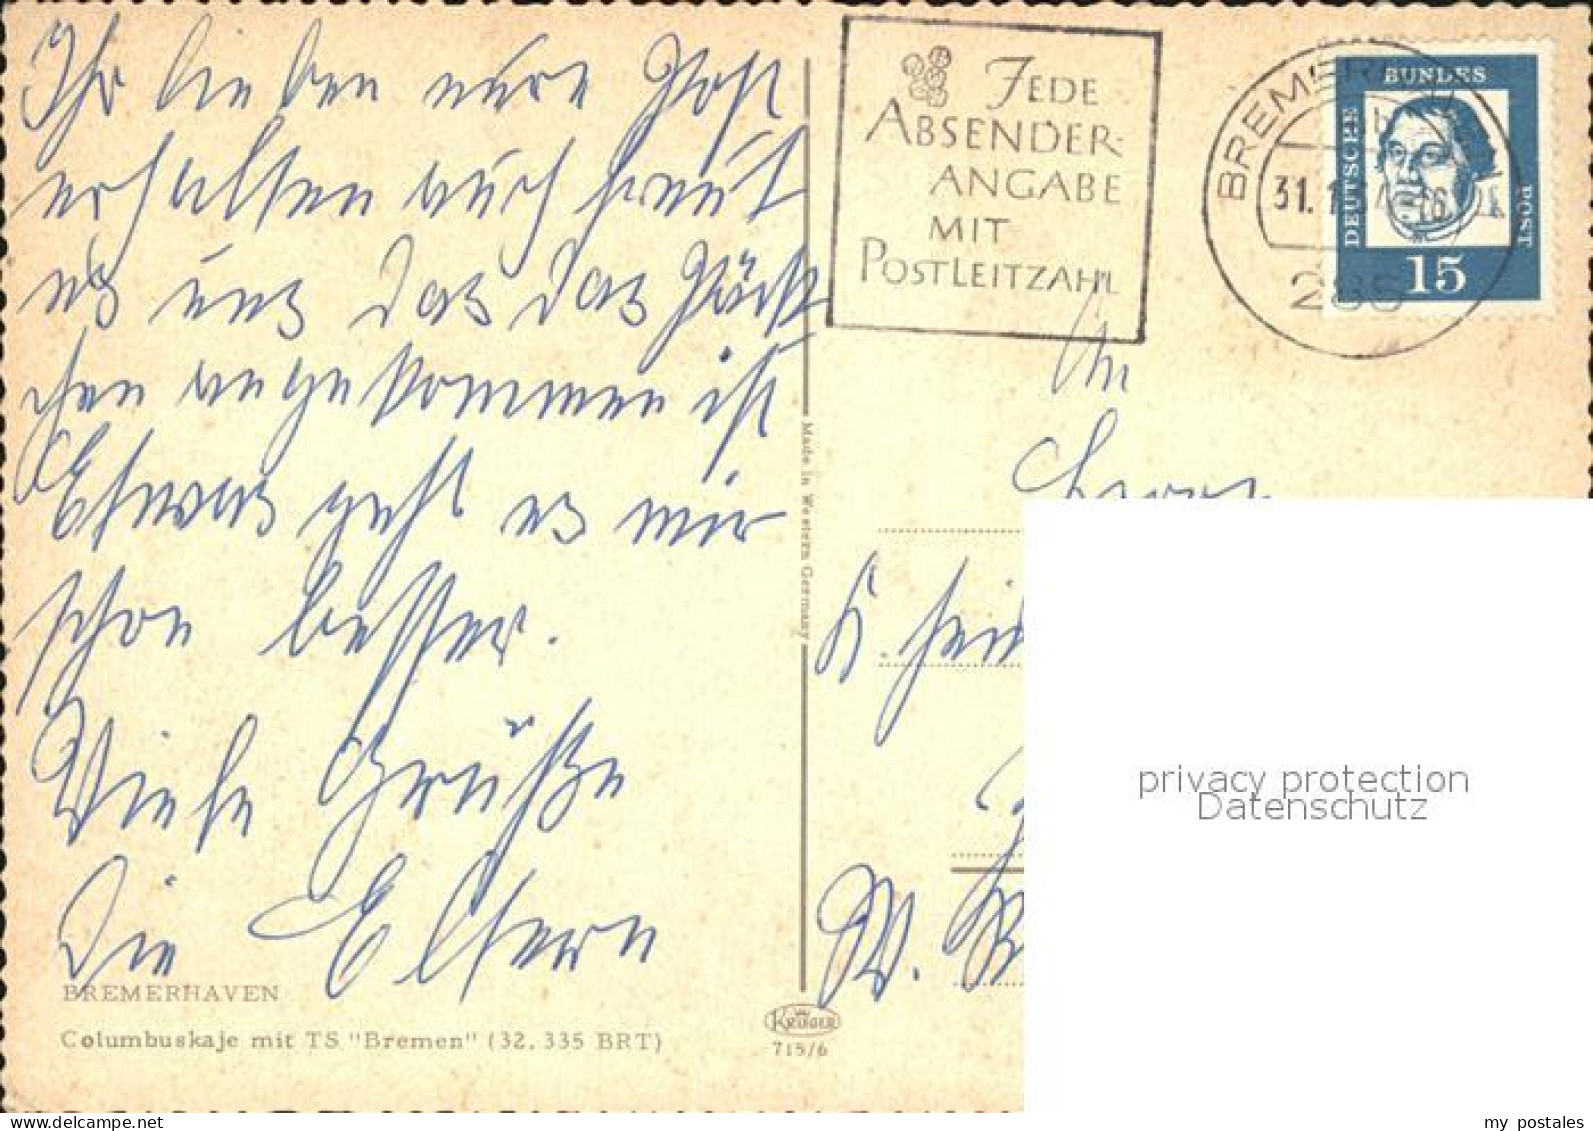 Ihr lieben eure Post
erhalten auch freut
es uns das das Päckt
chen angekommen ist
Etwas geht es mir
schon besser.
Viele Grüße
Die Eltern
BREMERHAVEN
Columbuskaje mit TS "Bremen" (32.335 BRT)
Made in Western Germany
KRÜGER
715/6
JEDE
ABSENDER-
ANGABE
MIT
POSTLEITZAHL
DEUTSCHE
BUNDES
POST
15
An
Herrn
K.
W.
privacy protection
Datenschutz
my postales